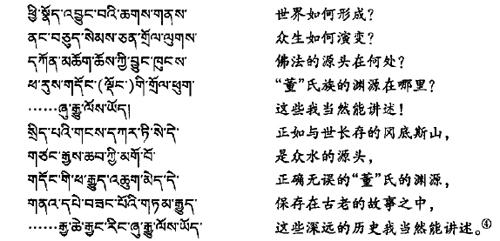 ཕྱི་སྣོད་འབྱུང་བའི་ཆགས་གནས་ 世界如何形成？
ནང་བཅུད་སེམས་ཅན་གྲོལ་ལུགས་ 众生如何演变？
དཀོན་མཆོག་ཆོས་ཀྱི་བྱུང་ཁུངས་ 佛法的源头在何处？
ཕ་རུས་གདོང་(ལྡོང་)གི་གྲོལ་ཕུག་ “董”氏族的渊源在哪里？
……ཞུ་རྒྱུ་ལོས་ཡོད། 这些我当然能讲述！
སྲིད་པའི་གངས་དཀར་ཏི་སེ་དེ་ 正如与世长存的冈底斯山，
གཙང་རྒྱས་ཆབ་ཀྱི་མགོ་བོ་ 是众水的源头，
གདོང་གི་ཕ་རྒྱུད་འཆུག་མེད་དེ་ 正确无误的“董”氏的渊源，
གནའ་དཔེ་བཟང་པོའི་གཏམ་རྒྱུད་ 保存在古老的故事之中，
……རྒྱ་ཆེ་རྒྱང་རིང་ཞུ་རྒྱུ་ལོས་ཡོད་ 这些深远的历史我当然能讲述。④